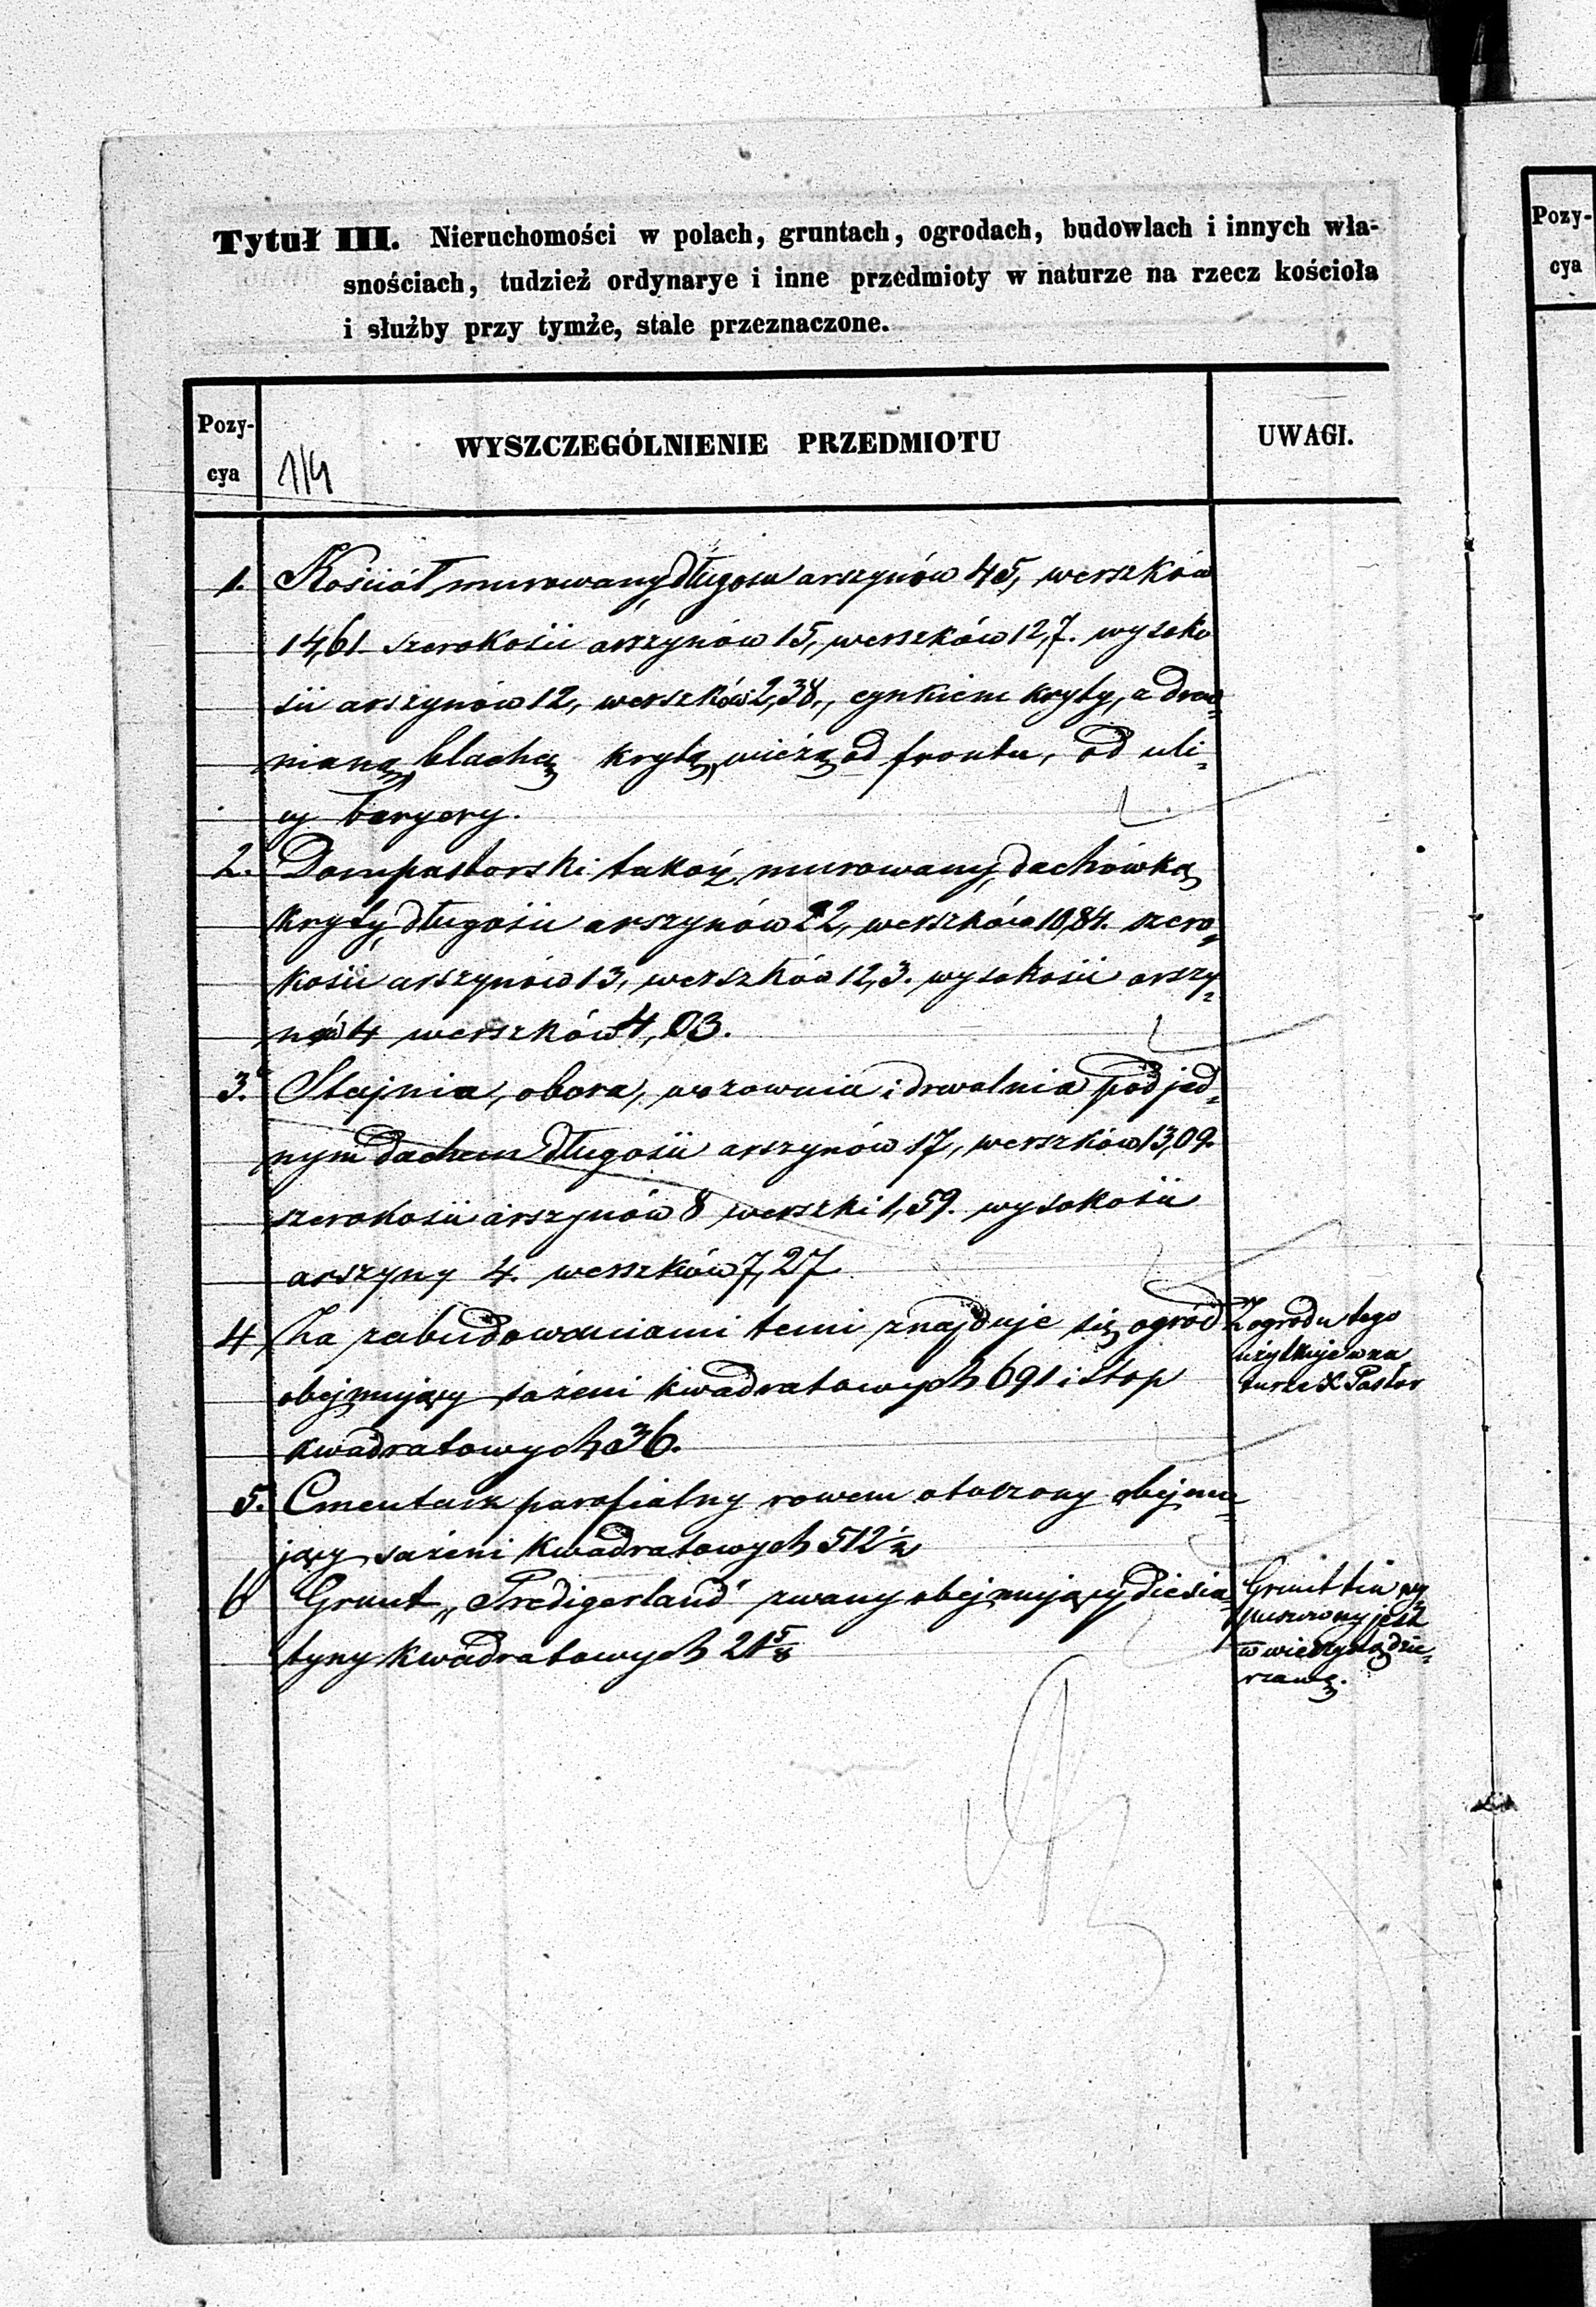 Tytuł III. Nieruchomości w polach, gruntach, ogrodach, budowlach i innych wła-
snościach, tudzież ordynarye i inne przedmioty w naturze na rzecz kościoła
i służby przy tymże, stale przeznaczone.
Pozy-
cya
WYSZCZEGÓLNIENIE PRZEDMIOTU
UWAGI.
1. Kościół murowany, długości arszynów 45, werszków
14,61 szerokości arszynów 15, werszków 12,7. wysoko
ści arszynów 12, werszków 2,38., cynkiem kryty, z drew-
nianą, blachą krytą, wieżą od frontu, od uli-
cy
2. Dom pastorski takoż murowany, dachówką
kryty, długości arszynów 22, werszków 10,84. szero-
kości arszynów 13, werszków 12,3. wysokości arszy-
nów 4 werszków 4,03.
3. Stajnia, obora, wozownia i drwalnia pod jed-
nym dachem długości arszynów 17, werszków 13,09.
szerokości arszynów 8 werszki 1,59. wysokości
arszyny 4. werszków 7,27
4 Za zabudowaniami temi znajduje się ogród
obejmujący sążeni kwadratowych 691 i stop
kwadratowych 36.
Z ogrodu tego
użytkuje w na
turze X Pastor
5. Cmentarz parafialny rowem otoczony obejmu-
jący sążeni kwadratowych 512 1/2
6 Grunt „Predigerland" zwany obejmujący diesia-
tyny kwadratowych 21 5/8
Grunt ten wy
puszczony jest
w wieczystą dzie-
rżawę.
Pozy-
cya